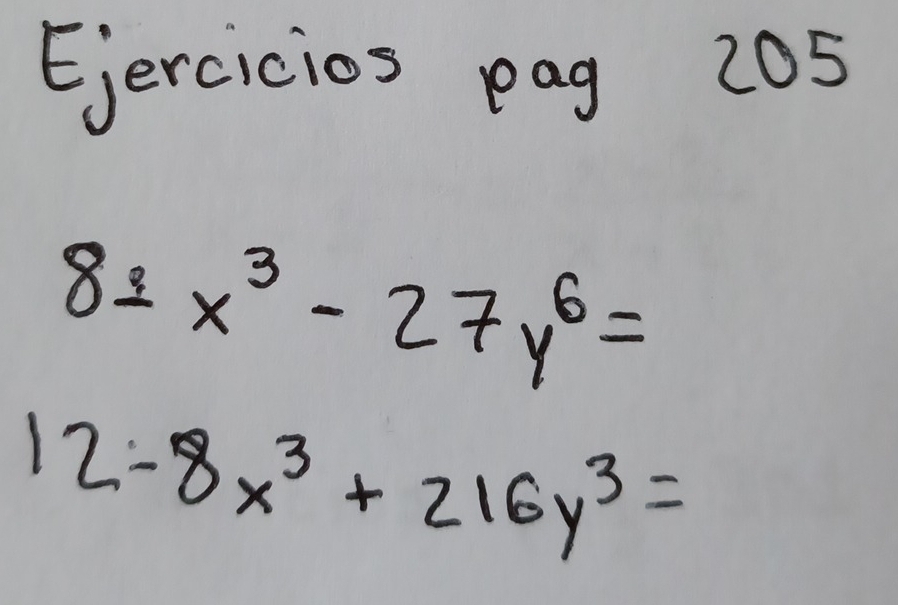 Ejercicios pag 205
8.- x³ - 27y⁶ =
12.- 8x³ + 216y³ =